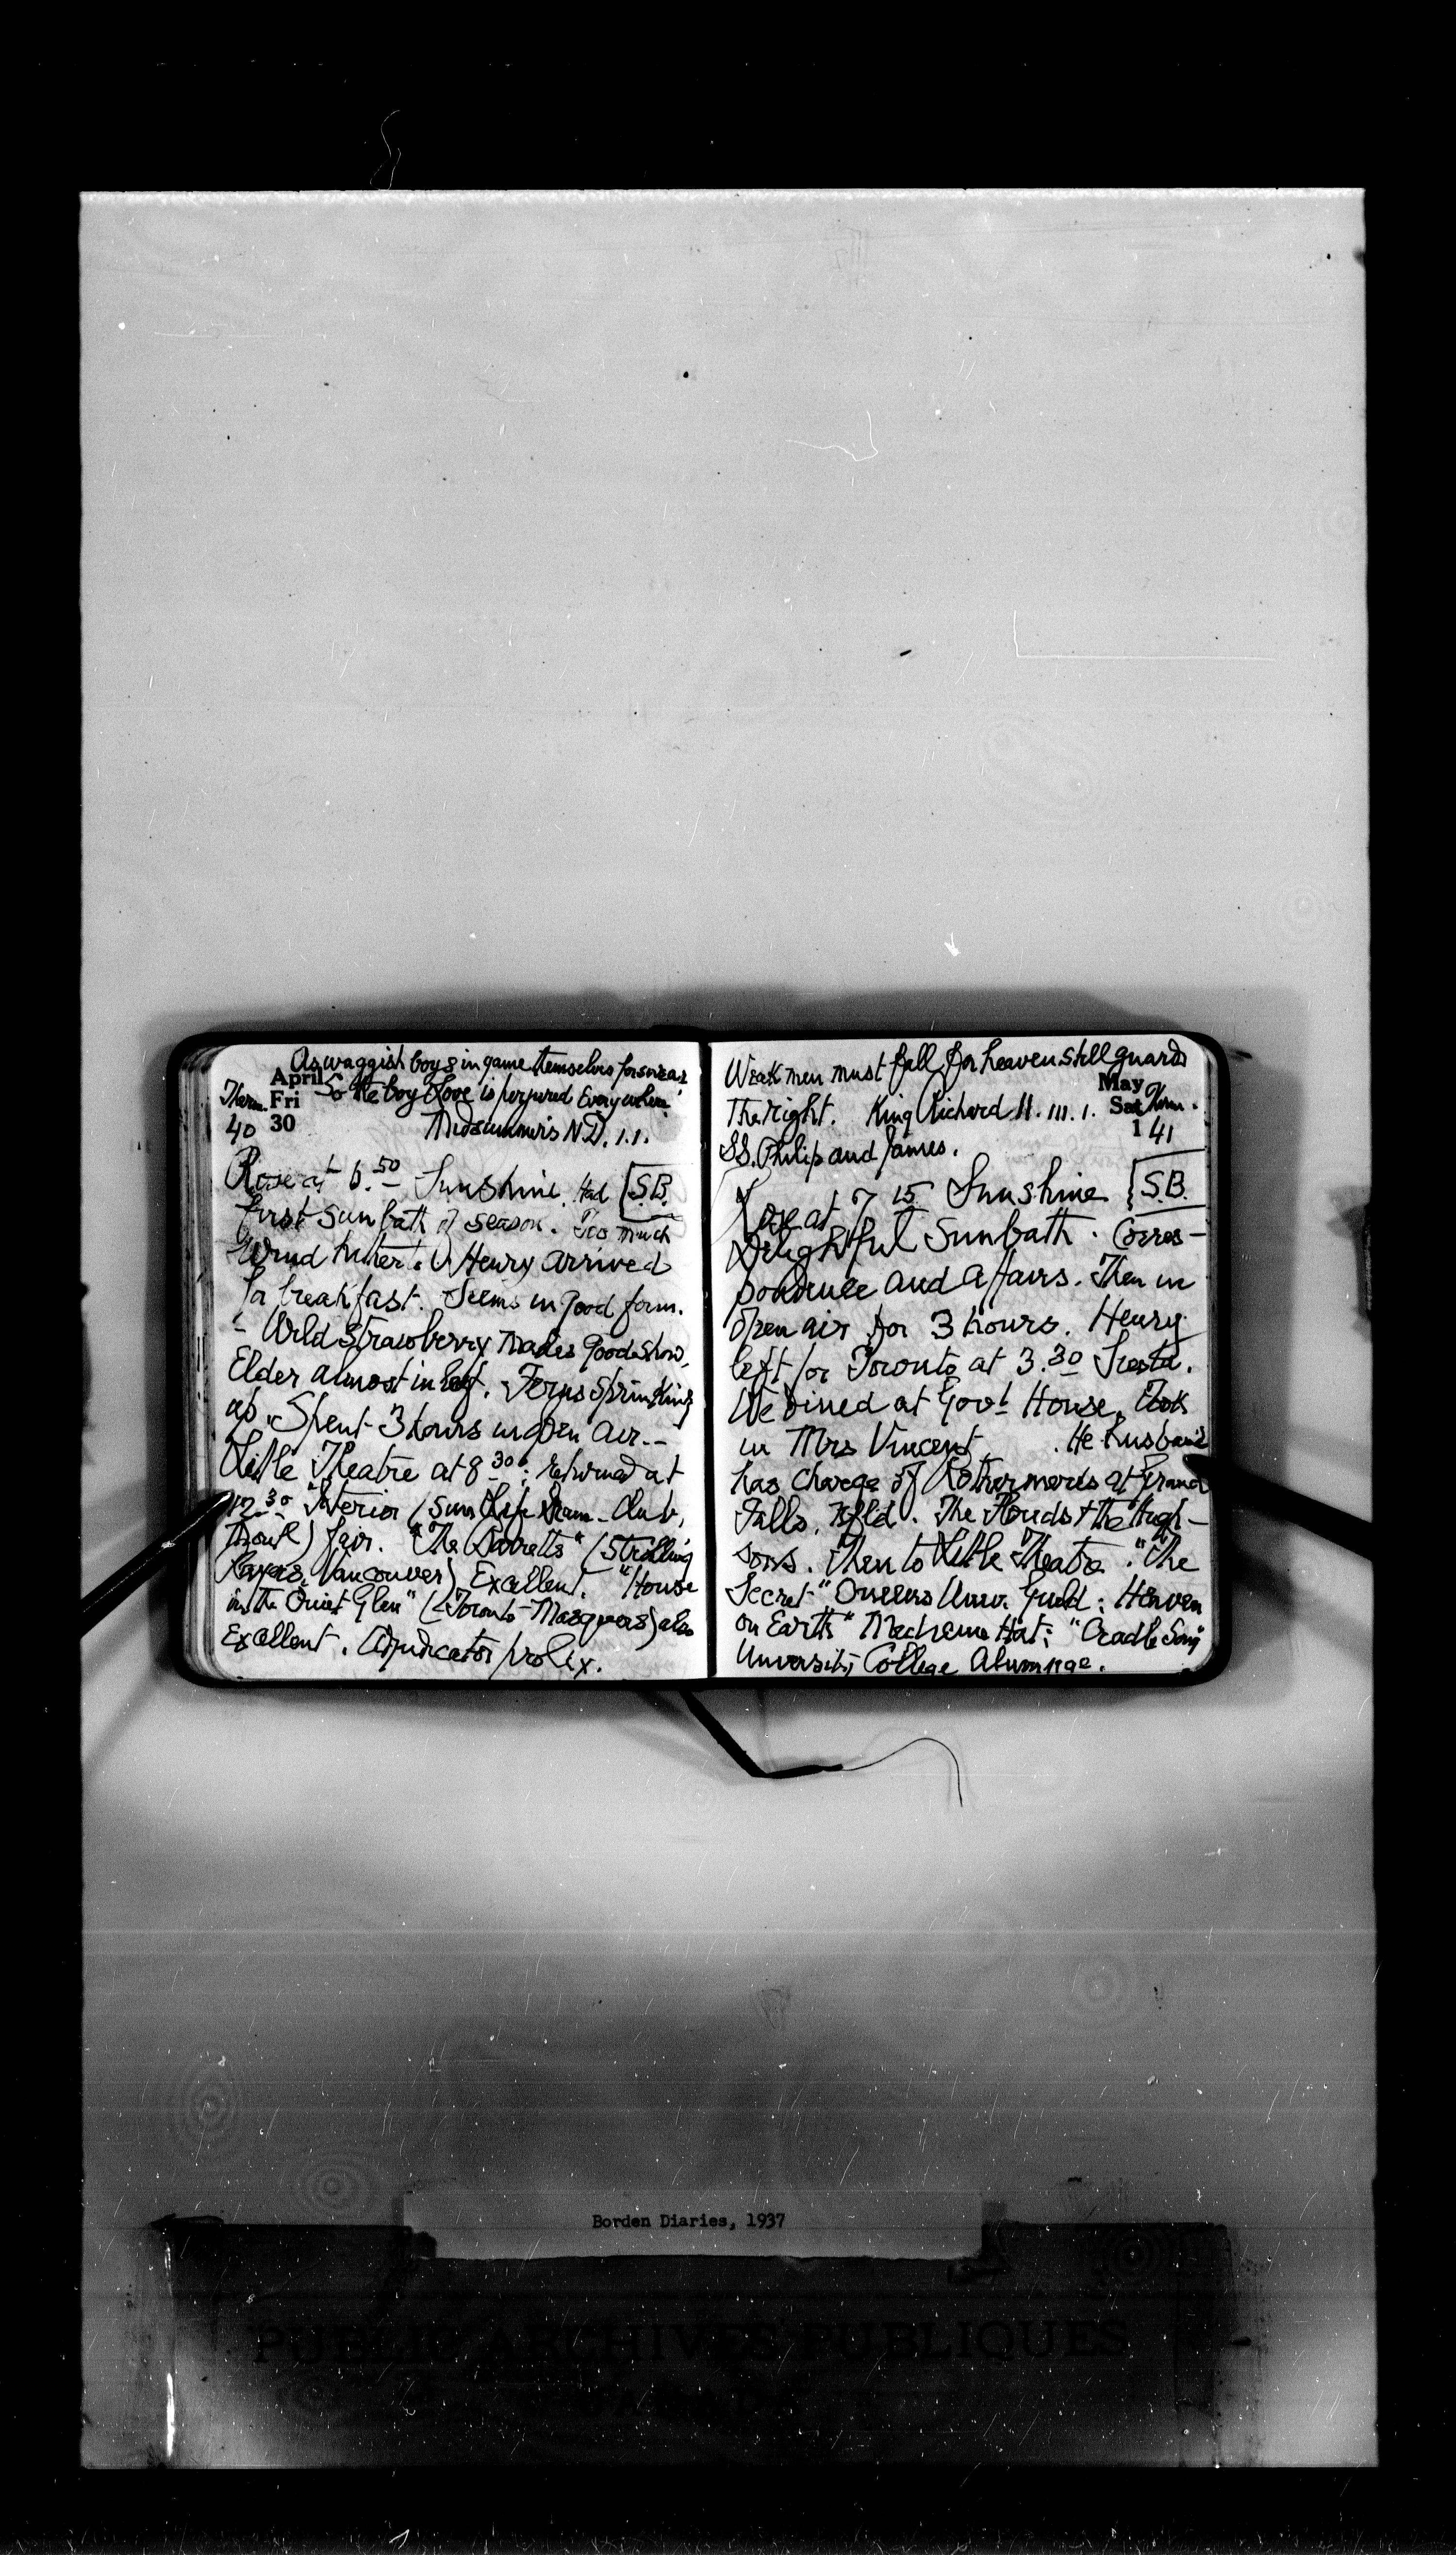 As waggish boys in game themselves forswear
April So the boy Love is perjured Everywhere
Therm. Fri
40 30 Midsummer's N.D. 1.1.
Rose at 6.50 Sunshine. Had S.B.
first sunbath of season. Too much
wind hitherto. Henry arrived
for breakfast. Seems in good form.
- Wild strawberry makes good show,
Elder almost in leaf. Ferns springing
up. Spent 3 hours in open air. -
Little Theatre at 8.30; returned at
12.30 "Interior (Sun Life Dram. Club,
Montl) fair. "The Barretts" (Strolling
Players, Vancouver) Excellent. "House
in the Quiet Glen" (Toronto Masquers) also
Excellent. Adjudicator prolix.
Weak men must fall for heaven still guards
May
The right. King Richard II. III. 1. Sat Therm.
1 41
SS. Philip and James.
Rose at 7 15 Sunshine S.B.
Delightful Sunbath. Corres-
pondence and affairs. Then in
open air for 3 hours. Henry
left for Toronto at 3.30 Siesta.
We dined at Govt House. Took
in Mrs Vincent. He husband
has charge of Rothermere's at Grand
Falls, Nfld. The Floods & the Hugh-
sons. Then to Little Theatre. "The
Secret" Queens Univ. Guild; Heaven
on Earth" Medicine Hat; "Cradle Song"
University College Alumnae.
Borden Diaries, 1937
PUBLIC ARCHIVES PUBLIQUES